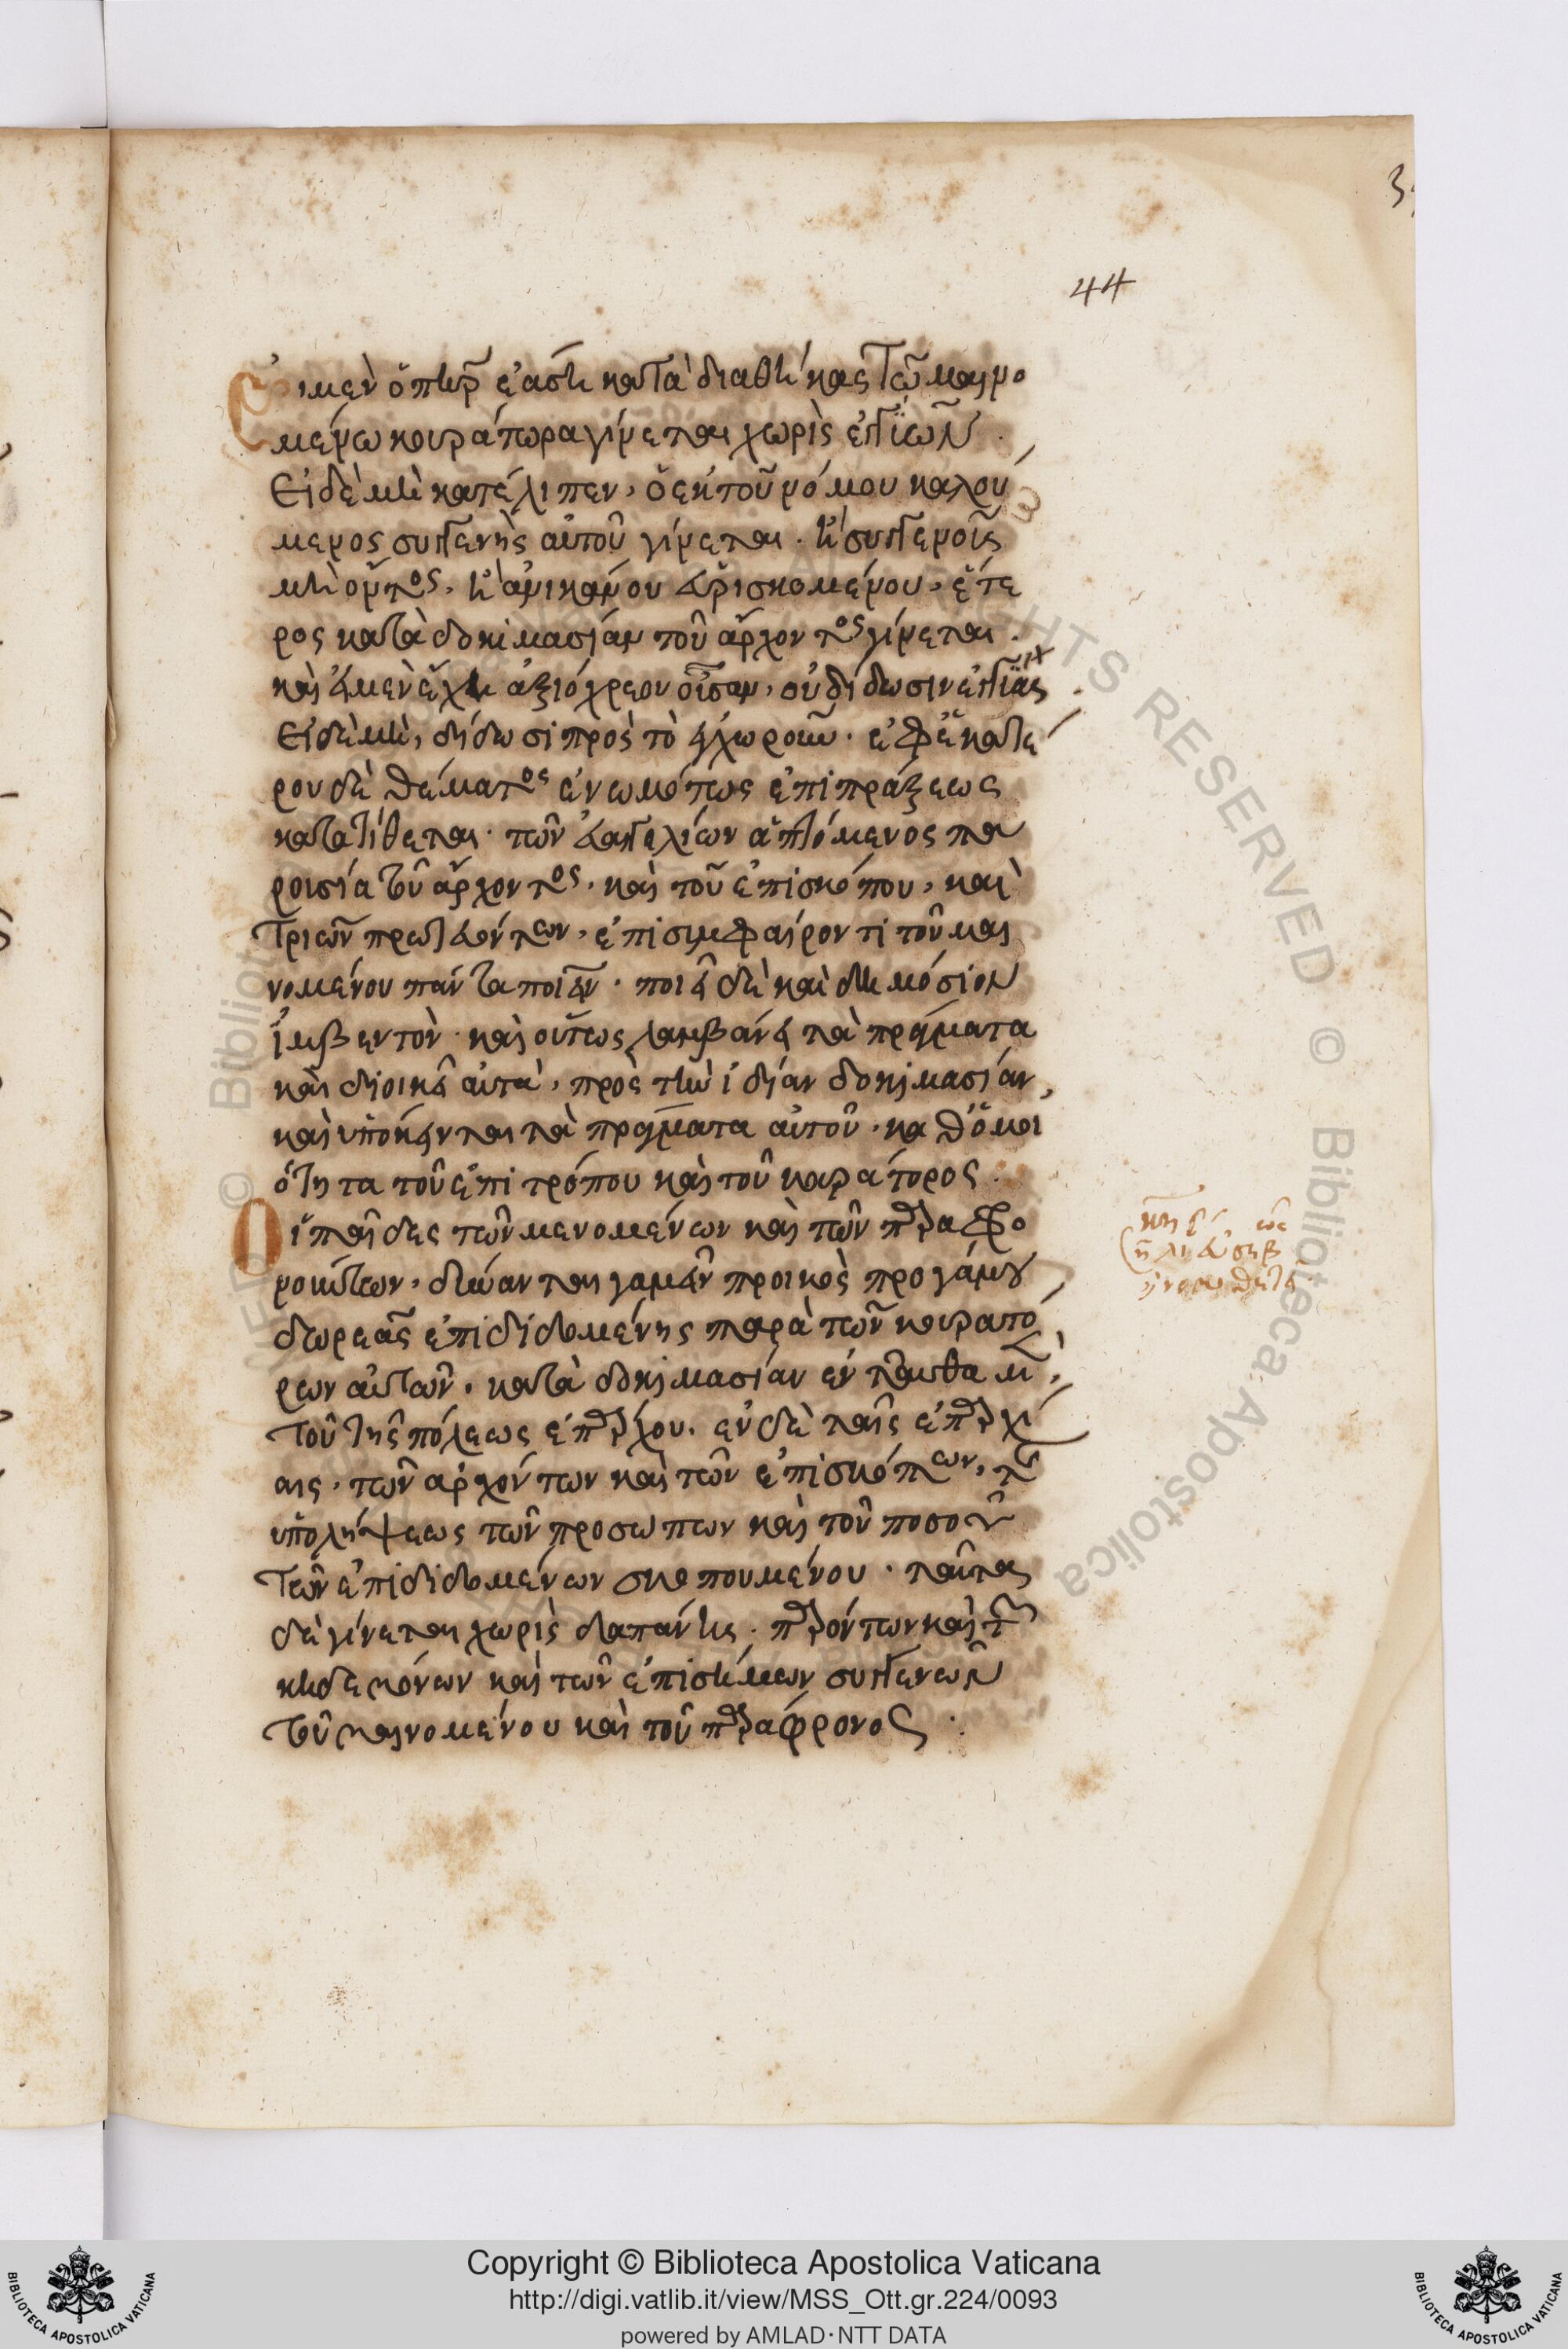 44
Εἰ μὲν ὁ πατὴρ ἐάσῃ κατὰ διαθήκας τῶ μαινο
μένω κουράτωρα γίνεται χωρὶς ἐγγϊῶν.
Εἰ δὲ μὴ κατέλιπεν, ὁ ἐκ τοῦ νόμου καλού
μενος συγγενὴς αὐτοῦ γίνεται. ἢ συγγενοῦς
μὴ ὄντος, ἢ ἀνικάνου εὑρισκομένου, ἕτε
ρος κατὰ δοκιμασίαν τοῦ ἄρχοντος γίνεται.
καὶ εἰ μὲν ἔχει ἀξιόχρεον οὐσίαν, οὐ δίδωσιν ἐγγΐας
Εἰ δὲ μὴ, δίδωσι πρὸς τὸ ἐγχωροῦν. ἐφ' ἑκατέ
ρου δὲ θέματος ἐνωμότως ἐπι πράξεως
κατατίθεται. τῶν εὐαγγελίων ἁπτόμενος πα
ρουσία τοῦ ἄρχοντος. καὶ τοῦ ἐπισκόπου, καὶ
τριῶν πρωτευόντων, ἐπι συμφαίροντι τοῦ μαι
νομένου πάντα ποιεῖν. ποιεῖ δὲ καὶ δημόσιον
ἴμβεντον. καὶ οὕτως λαμβάνει τὰ πράγματα
καὶ διοικεῖ αὐτὰ, πρὸς τὴν ἰδίαν δοκιμασίαν,
καὶ ὑπόκεινται τὰ πράγματα αὐτοῦ. καθ' ὁμοι
ότητα τοῦ ἐπιτρόπου καὶ τοῦ καράτορος.
Οἱ παῖδες τῶν μενομένων καὶ τῶν παραφρο
νούντων, δύνανται γαμεῖν προικὸς προγάμου
δωρεᾶς ἐπιδιδομένης παρὰ τῶν κουρατό
ρων αὐτῶν. κατὰ δοκιμασίαν ἐνταῦθα μὲν,
τοῦ τῆς πόλεως ἐπάρχου. ἐν δὲ ταῖς ἐπαρχί
αις. τῶν ἀρχόντων καὶ τῶν ἐπισκόπων, τῆς
ὑπολήψεως τῶν προσώπων καὶ τοῦ ποσοῦ
τῶν ἐπιδιδομένων σκοπουμένου. ταῦτα
δὲ γίνεται χωρὶς δαπάνης. παρόντων καὶ τῶν
κηδεμόνων καὶ τῶν ἐπισήμων συγγενῶν
τοῦ μαινομένου καὶ τοῦ παράφρονος.